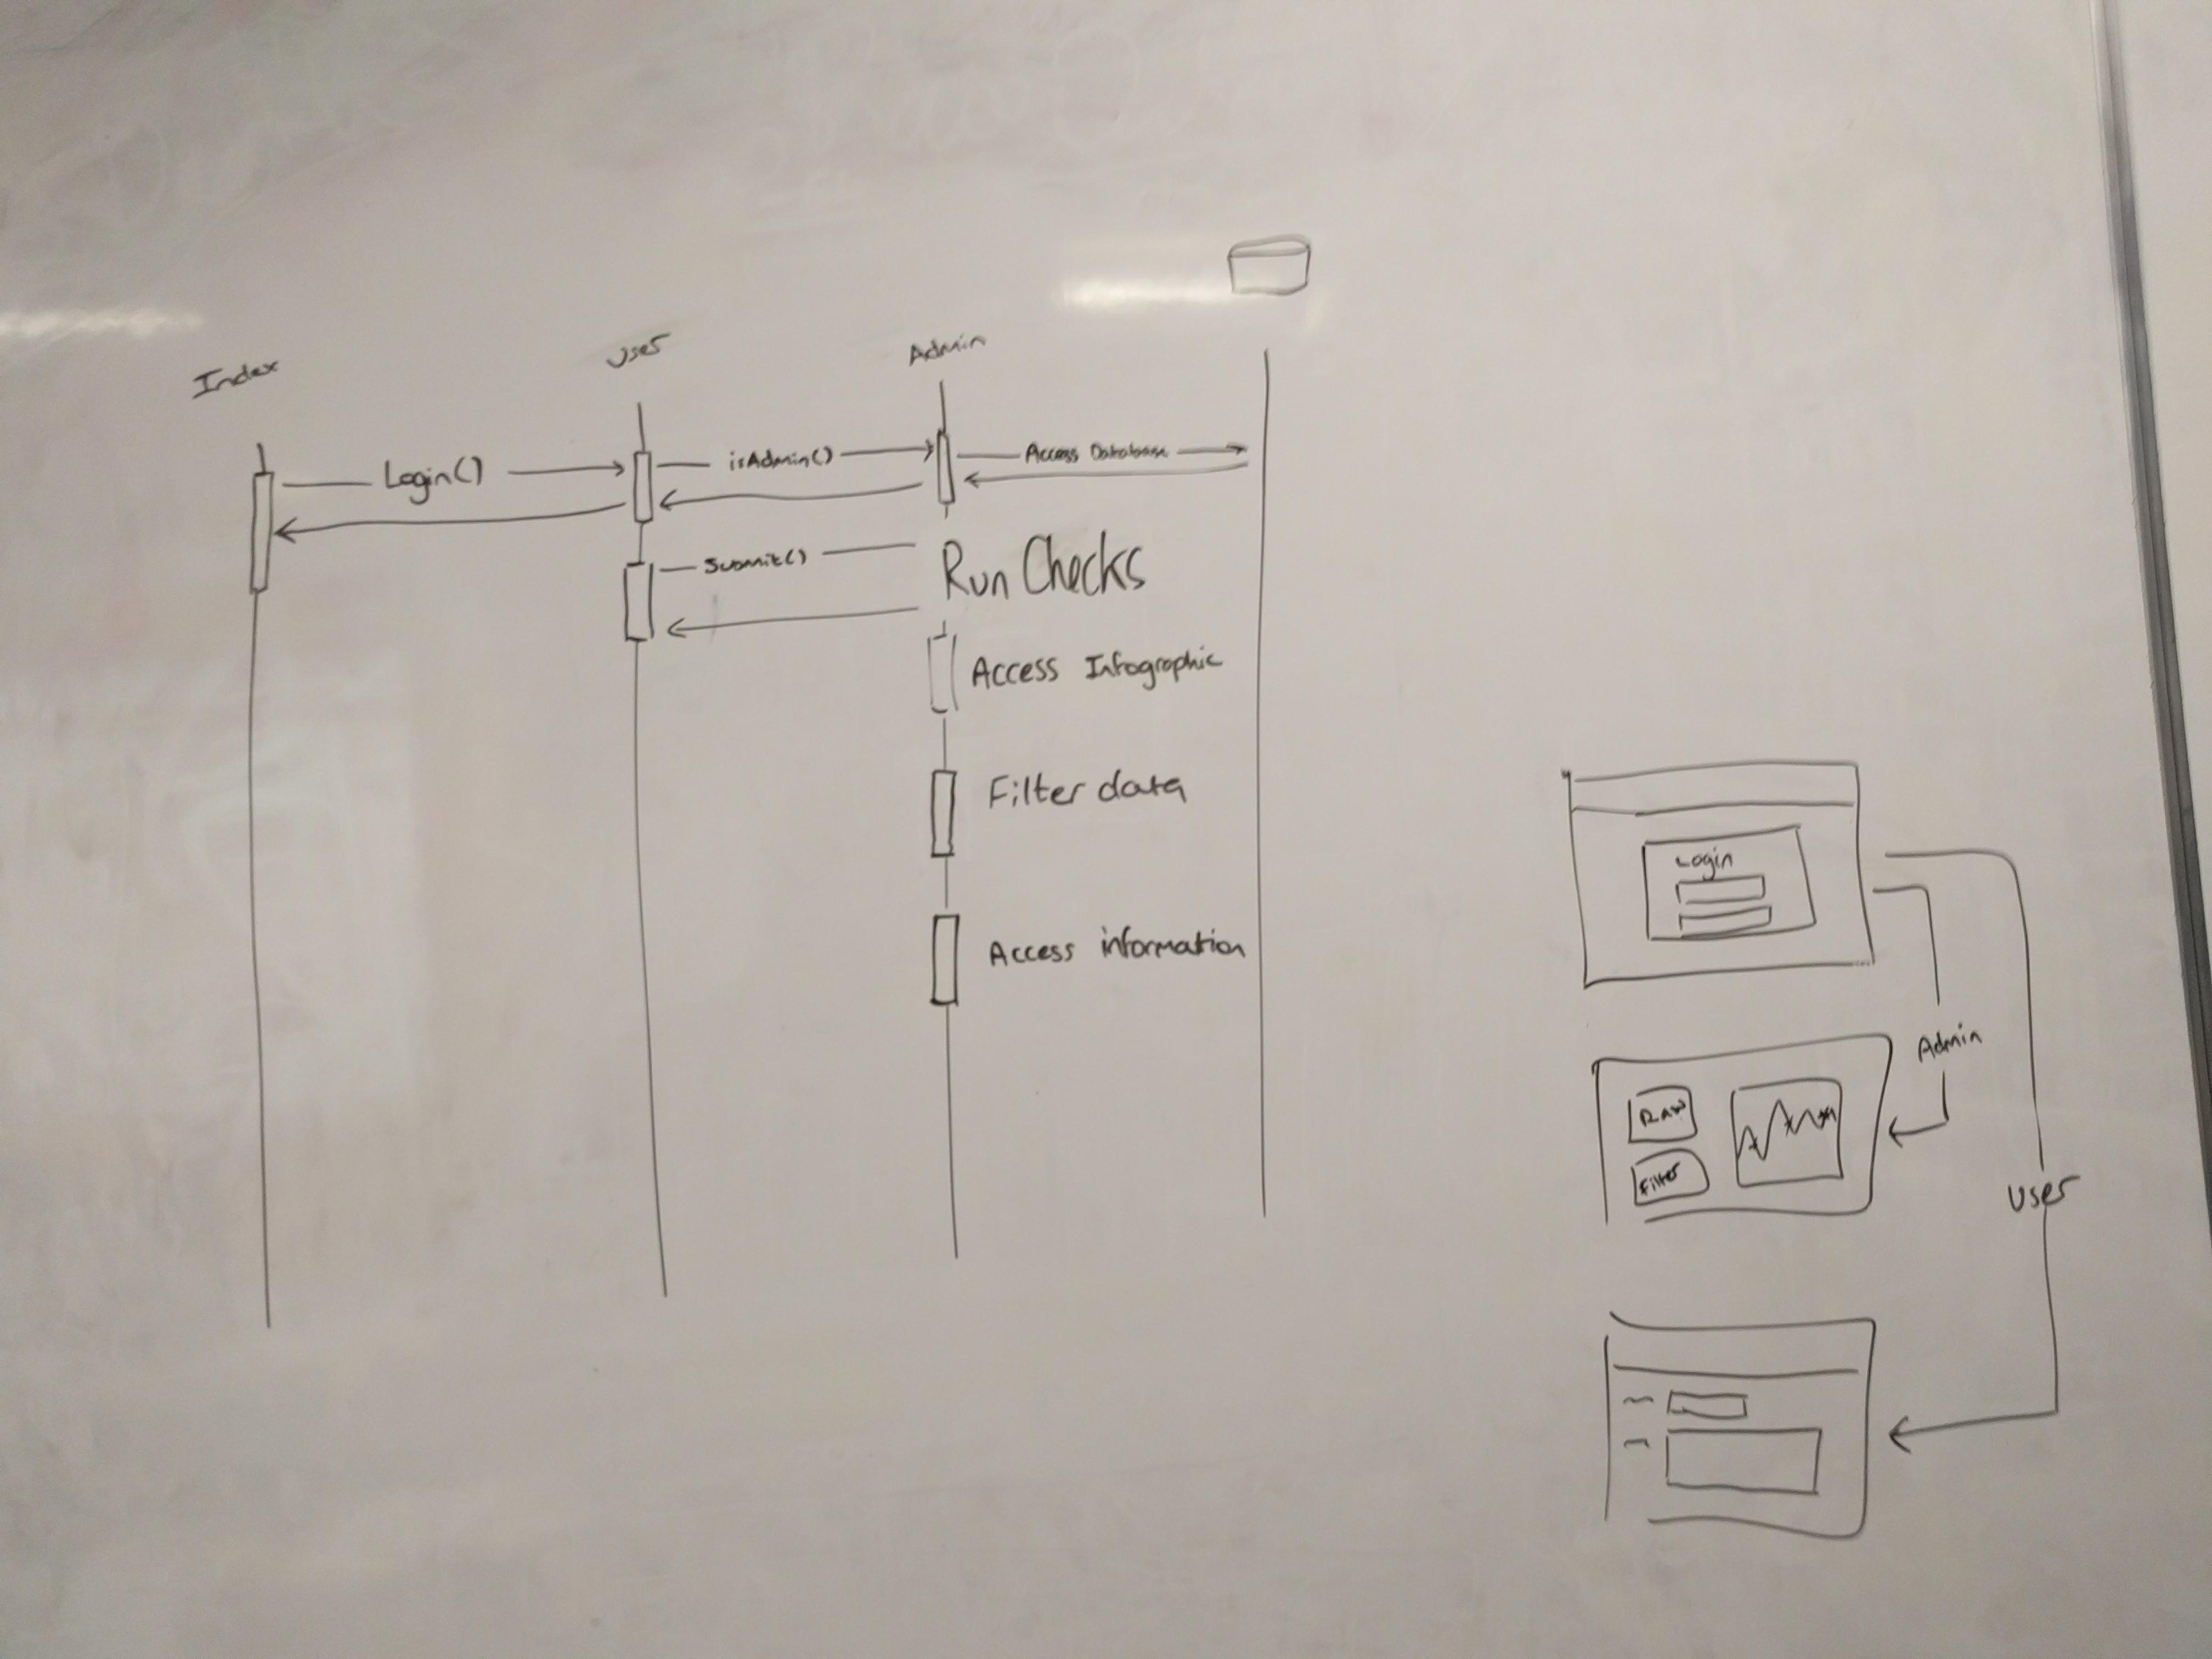 Index
User
Admin
Login()
isAdmin()
Access Database
Submit()
Run Checks
Access Infographic
Filter data
Access information
Login
Admin
Raw
Filter
User